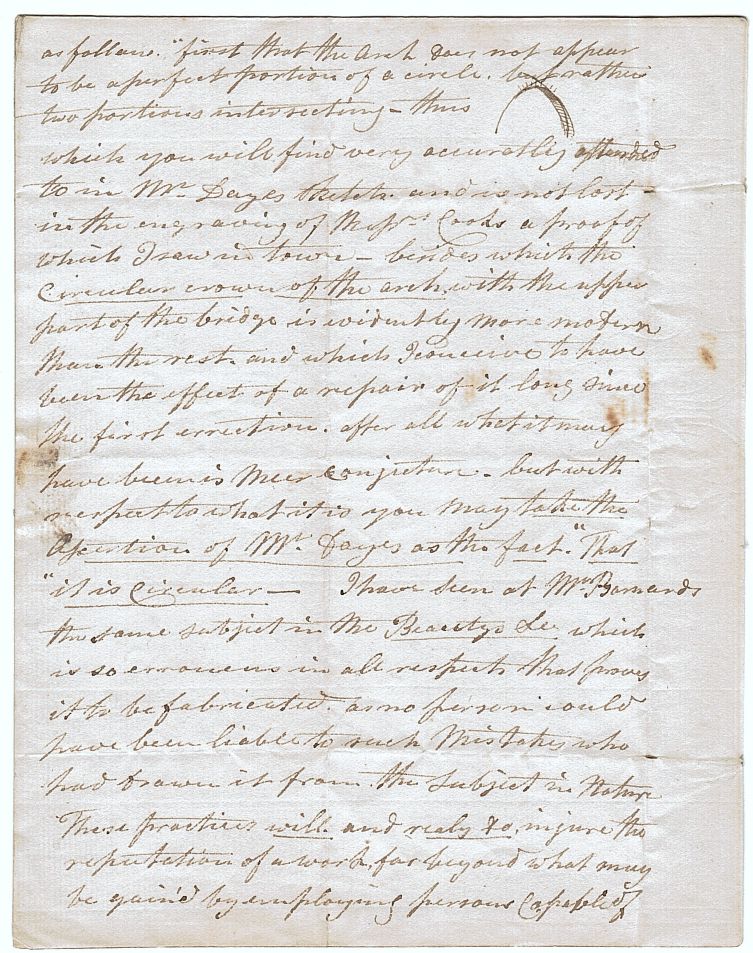 as follow. "first that the Arch does not appear
to be a perfect portion of a circle. but rather
two portions intersecting - thus
which you will find very accuratly attended
to in Mr. Dayes Sketch. and is not lost -
in the engraving of Messrs. Cooks a proof of
which I saw in town - besides which the
circular crown of the arch. with the upper
part of the bridge is evidently more modern
than the rest. and which I conceive to have
been the effect of a repair of it long since
the first errection. after all what it may
have been is meer conjecture. but with
respect to what it is you may take the
Assertion of Mr. Dayes as the fact. "That
"it is Circular - I have seen at Mr. Barnards
the same subject in the Beautys &c which
is so erroneus in all respects that proves
it to be fabricated. as no person could
have been liable to such Mistakes who
had drawn it from the subject in Nature
These practices will and realy do, injure the
reputation of a work far beyond what may
be gain'd by employing persons Capable of